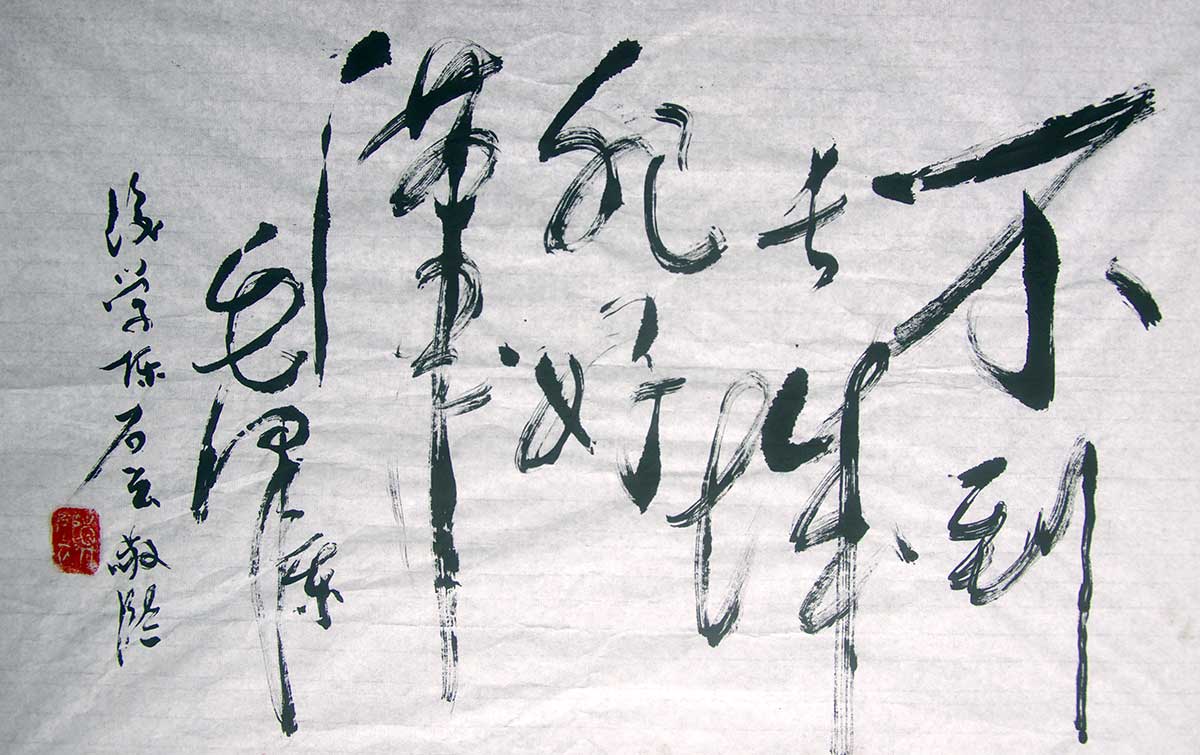 不到
长城
非好
漢
毛泽东
後学陈石云敬临